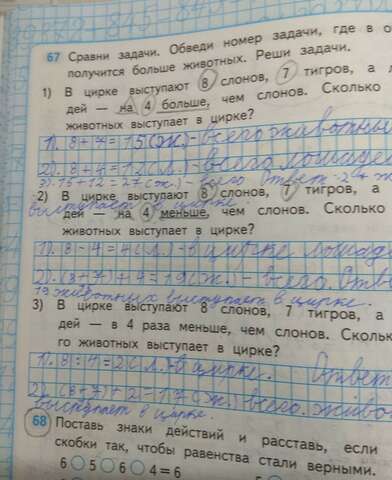 67 Сравни задачи. Обведи номер задачи, где в о
получится больше животных. Реши задачи.
1) В цирке выступают 8 слонов, 7 тигров, а л
дей — на 4 больше, чем слонов. Сколько
животных выступает в цирке?
1). 8+7=15(ж.)- всего животны
2). 8+4=12(л.)- всего лошадей
3). 15+12=27(ж.)- всего Ответ
выступает в цирке.
2) В цирке выступают 8 слонов, 7 тигров, а
дей — на 4 меньше, чем слонов. Сколько
животных выступает в цирке?
1). 8-4=4(л.)- в цирке лошад
2). (8+7)+4=19(ж.)- всего. Отве
19 животных выступает в цирке.
3) В цирке выступают 8 слонов, 7 тигров, а
дей — в 4 раза меньше, чем слонов. Скольк
го животных выступает в цирке?
1). 8:4=2(л.)-в цирке. Ответ
2). (8+7)+2=17(ж.) всего. живо
выступает в цирке.
68 Поставь знаки действий и расставь, если
скобки так, чтобы равенства стали верными.
6 5 6 4 = 6